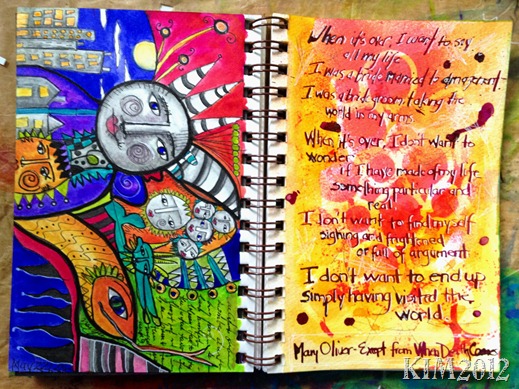 When it's over, I want to say
all my life
I was a bride married to amazement.
I was a bridegroom, taking the
world in my arms
When it's over, I don't want to
wonder
if I have made of my life
something particular and
real.
I don't want to find myself
sighing and frightened
or full of argument
I don't want to end up
simply having visited the
world.
Mary Oliver - Exept from When Death Comes
K1M2012